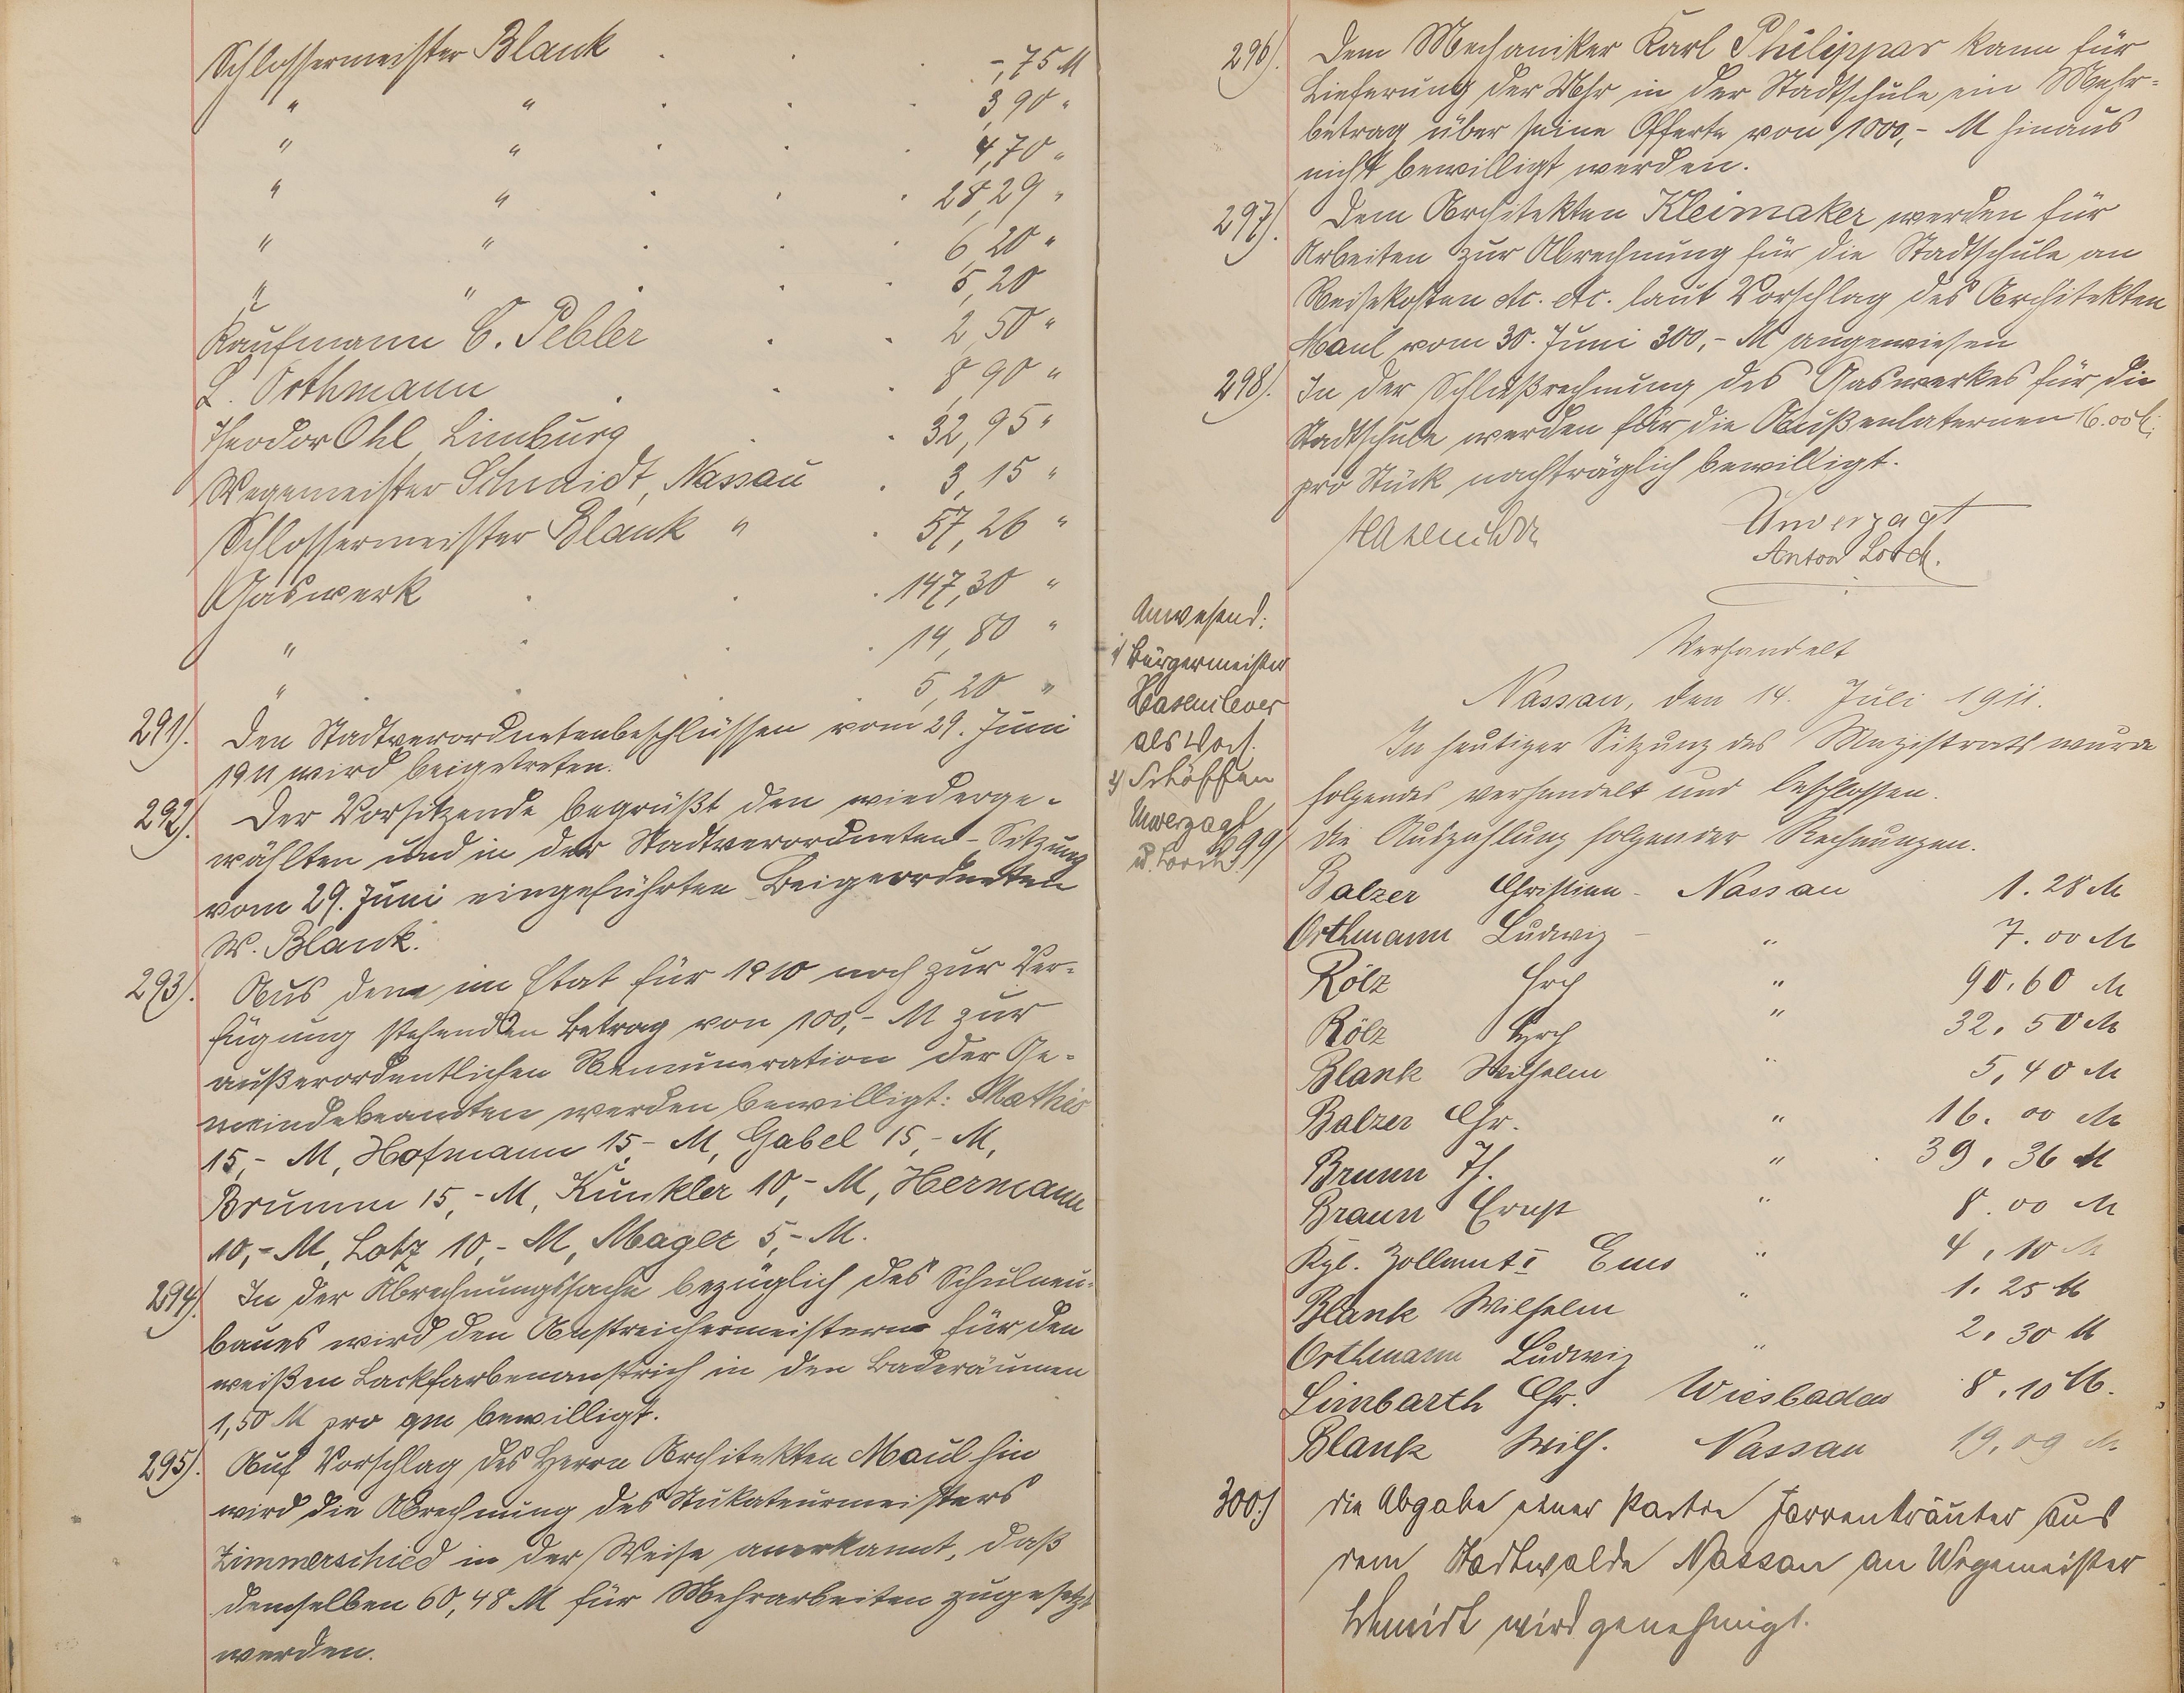 Schlossermeister Blank . . . -,75 M
" " . . . 3,90 "
" " . . . 4,70 "
" " . . . 28,29 "
" " . . . 6,20 "
" " . . . 5,20
Kaufmann C. Pebler . . 2,50 "
L. Orthmann . . . 8,90 "
Theodor Ohl Limburg . . 32,95 "
Wegemeister Schmidt, Nassau . 3,15 "
Schlossermeister Blank " . 57,26 "
Gaswerk . . . 147,30 "
" . . . 14,80 "
" . . . 5,20 "
291). Den Stadtverordnetenbeschlüssen vom 29. Juni
1911 wird beigetreten.
292). Der Vorsitzende begrüßt den wiederge-
wählten und in der Stadtverordneten-Sitzung
vom 29. Juni eingeführten Beigeordneten
W. Blank.
293). Aus dem im Etat für 1910 noch zur Ver-
fügung stehenden Betrag von 100,- M zur
außerordentlichen Remuneration der Ge-
meindebeamten werden bewilligt: Mathis
15,- M, Hofmann 15,- M, Gabel 15,- M,
Brumm 15,- M, Kunkler 10,- M, Hermann
10,- M, Lotz 10,- M, Mager 5,- M.
294). In der Abrechnungssache bezüglich des Schulneu-
baues wird den Anstreichermeistern für den
weißen Lackfarbenanstrich in den Baderäumen
1,50 M pro qm bewilligt.
295). Auf Vorschlag des Herrn Architekten Maul hin
wird die Abrechnung des Stukateurmeisters
Zimmerschied in der Weise anerkannt, daß
demselben 60,48 M für Mehrarbeiten zugesetzt
werden.
296). Dem Mechaniker Karl Philippar kann für
Lieferung der Uhr in der Stadtschule ein Mehr-
betrag über seine Offerte von 1000,- M hinaus
nicht bewilligt werden.
297). Dem Architekten Kleimaker werden für
Arbeiten zur Abrechnung für die Stadtschule an
Reisekosten etc. etc. laut Vorschlag des Architekten
Maul vom 30. Juni 300,- M angewiesen
298). In der Schlußrechnung des Gaswerkes für die
Stadtschule werden für die Außenlaternen 16.00 M
pro Stück nachträglich bewilligt.
Hasenclever Unverzagt
Anton Lorch.
Anwesend:
1) Bürgermeister
Hasenclever
als Vors.
2) Schöffen
Unverzagt
u. Lorch.
Verhandelt
Nassau, den 14. Juli 1911.
In heutiger Sitzung des Magistrats wurde
folgendes verhandelt und beschlossen.
299) Die Auszahlung folgender Rechnungen.
Balzer Christian - Nassau 1.28 M
Orthmann Ludwig - " 7.00 M
Rölz Hrch " 90.60 M
Rölz Hrch " 32.50 M
Blank Wilhelm " 5,40 M
Balzer Chr. " 16.00 M
Brunn Th. " 39.36 M
Braun Ernst " 8.00 M
Kgl. Zollamt I Ems " 4,10 M
Blank Wilhelm " 1.25 M
Orthmann Ludwig " 2.30 M
Limbarth Chr. Wiesbaden 8.10 M.
Blank Wilh. Nassau 19,09 M.
300.) Die Abgabe einer Partie Farrenkräuter aus
dem Stadtwalde Nassau an Wegemeister
Schmidt wird genehmigt.